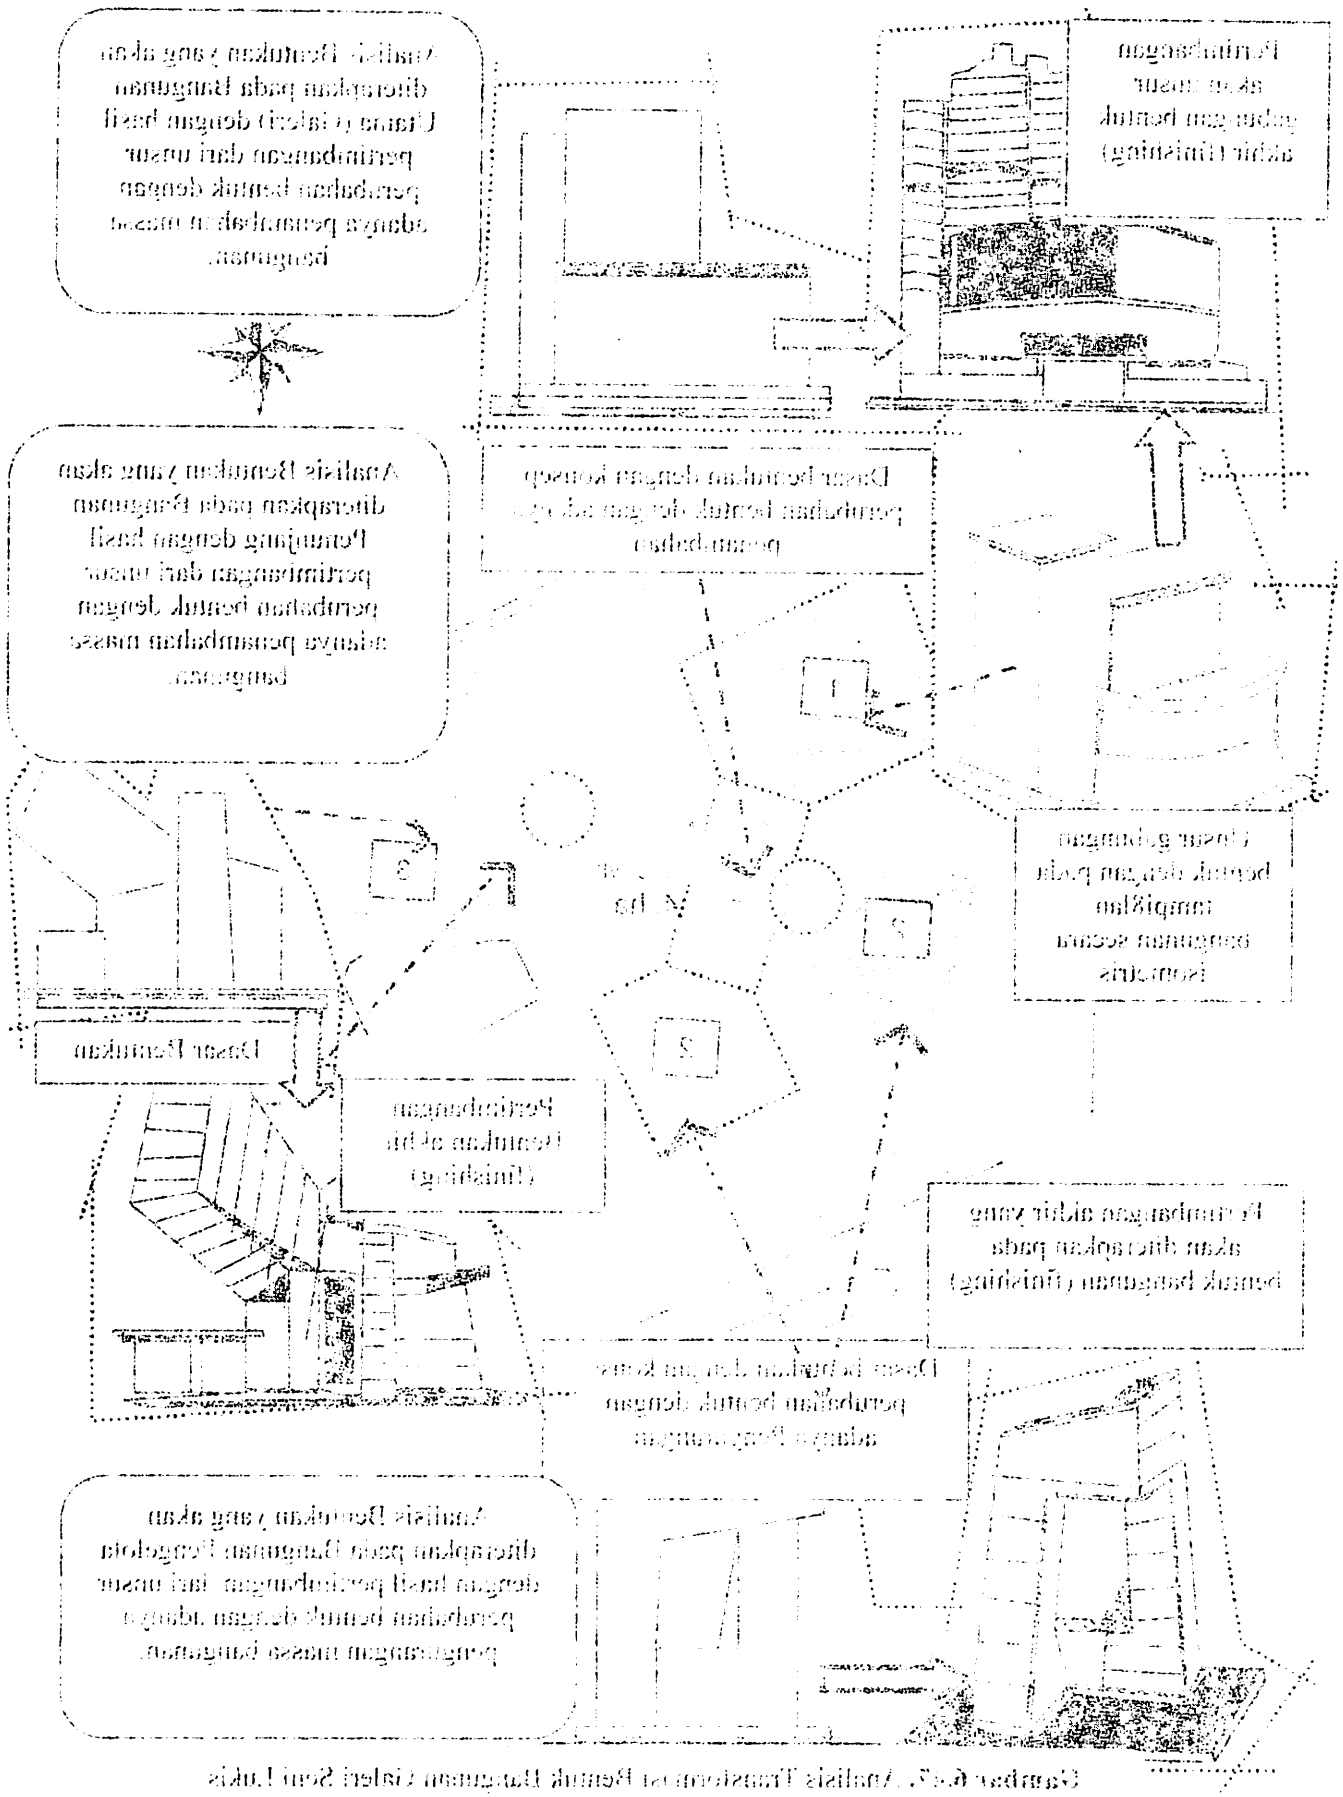 Analisis Bentukan yang akan
diterapkan pada Bangunan
Utama (Galeri) dengan hasil
pertimbangan dari unsur
perubahan bentuk dengan
adanya penambahan massa
bangunan.
Pertimbangan
akan unsur
gabungan bentuk
akhir (finishing)
Analisis Bentukan yang akan
diterapkan pada Bangunan
Penunjang dengan hasil
pertimbangan dari unsur
perubahan bentuk dengan
adanya penambahan massa
bangunan.
Dasar bentukan dengan konsep
perubahan bentuk dengan adanya
penambahan
1
Unsur gabungan
bentuk dengan pada
tampi8lan
bangunan secara
isometris
3
ha
2
2
Dasar Bentukan
Pertimbangan
Bentukan akhir
(finishing)
Pertimbangan akhir yang
akan diterapkan pada
bentuk bangunan (finishing)
Dasar bentukan dengan kons
perubahan bentuk dengan
adanya Pengurangan
Analisis Bentukan yang akan
diterapkan pada Bangunan Pengelola
dengan hasil pertimbangan dari unsur
perubahan bentuk dengan adanya
pengurangan massa bangunan.
Gambar 6.47. Analisis Transformasi Bentuk Bangunan Galeri Seni Lukis